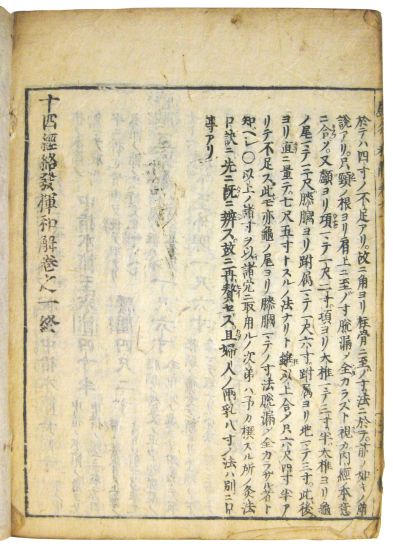 於テハ四寸ノ不足アリ。故ニ角ヨリ柱骨ニ至ノ寸法ニ於テ。前ノ如ノ
説アリ。只頸ノ根ヨリ肩上ニ至ノ寸脱漏ノ全カラスト視ハ内經本意
ニ合ス。又顱ヨリ項ヘテ一尺二寸。項ヨリ大椎ヘテ二寸半。大椎ヨリ龜
ノ尾ヘテ三尺。膝膕ヨリ跗屬ヘテ一尺六寸。跗屬ヨリ地ヘテ三寸。此後
ヨリ直ニ量テ。七尺五寸トスルノ法ナリト雖。以上合ノ只六尺四寸半ア
リテ不足ス。此モ亦龜ノ尾ヨリ膝膕ヘテノ寸法脱漏ノ全カラサル
知ヘシ〇以上ノ諸寸ヲ以諸穴ニ取用ルノ次第ハ予カ撰スル所ノ灸法
口訣ニ先ニ既ニ辨ス。故ニ再贅セス。且婦人ノ兩乳八寸ノ法ハ別ニ口
傳アリ
十四經絡發揮和解卷之一終